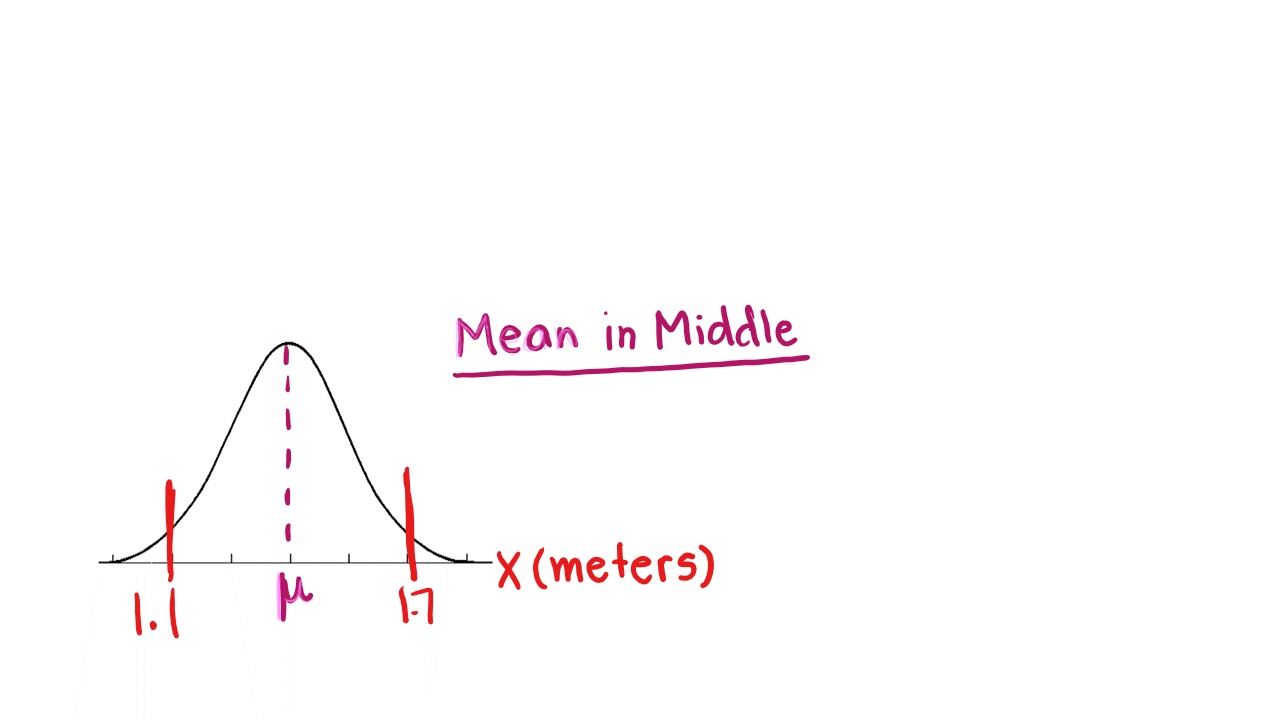 Mean in Middle
X (meters)
1.1
μ
1.7